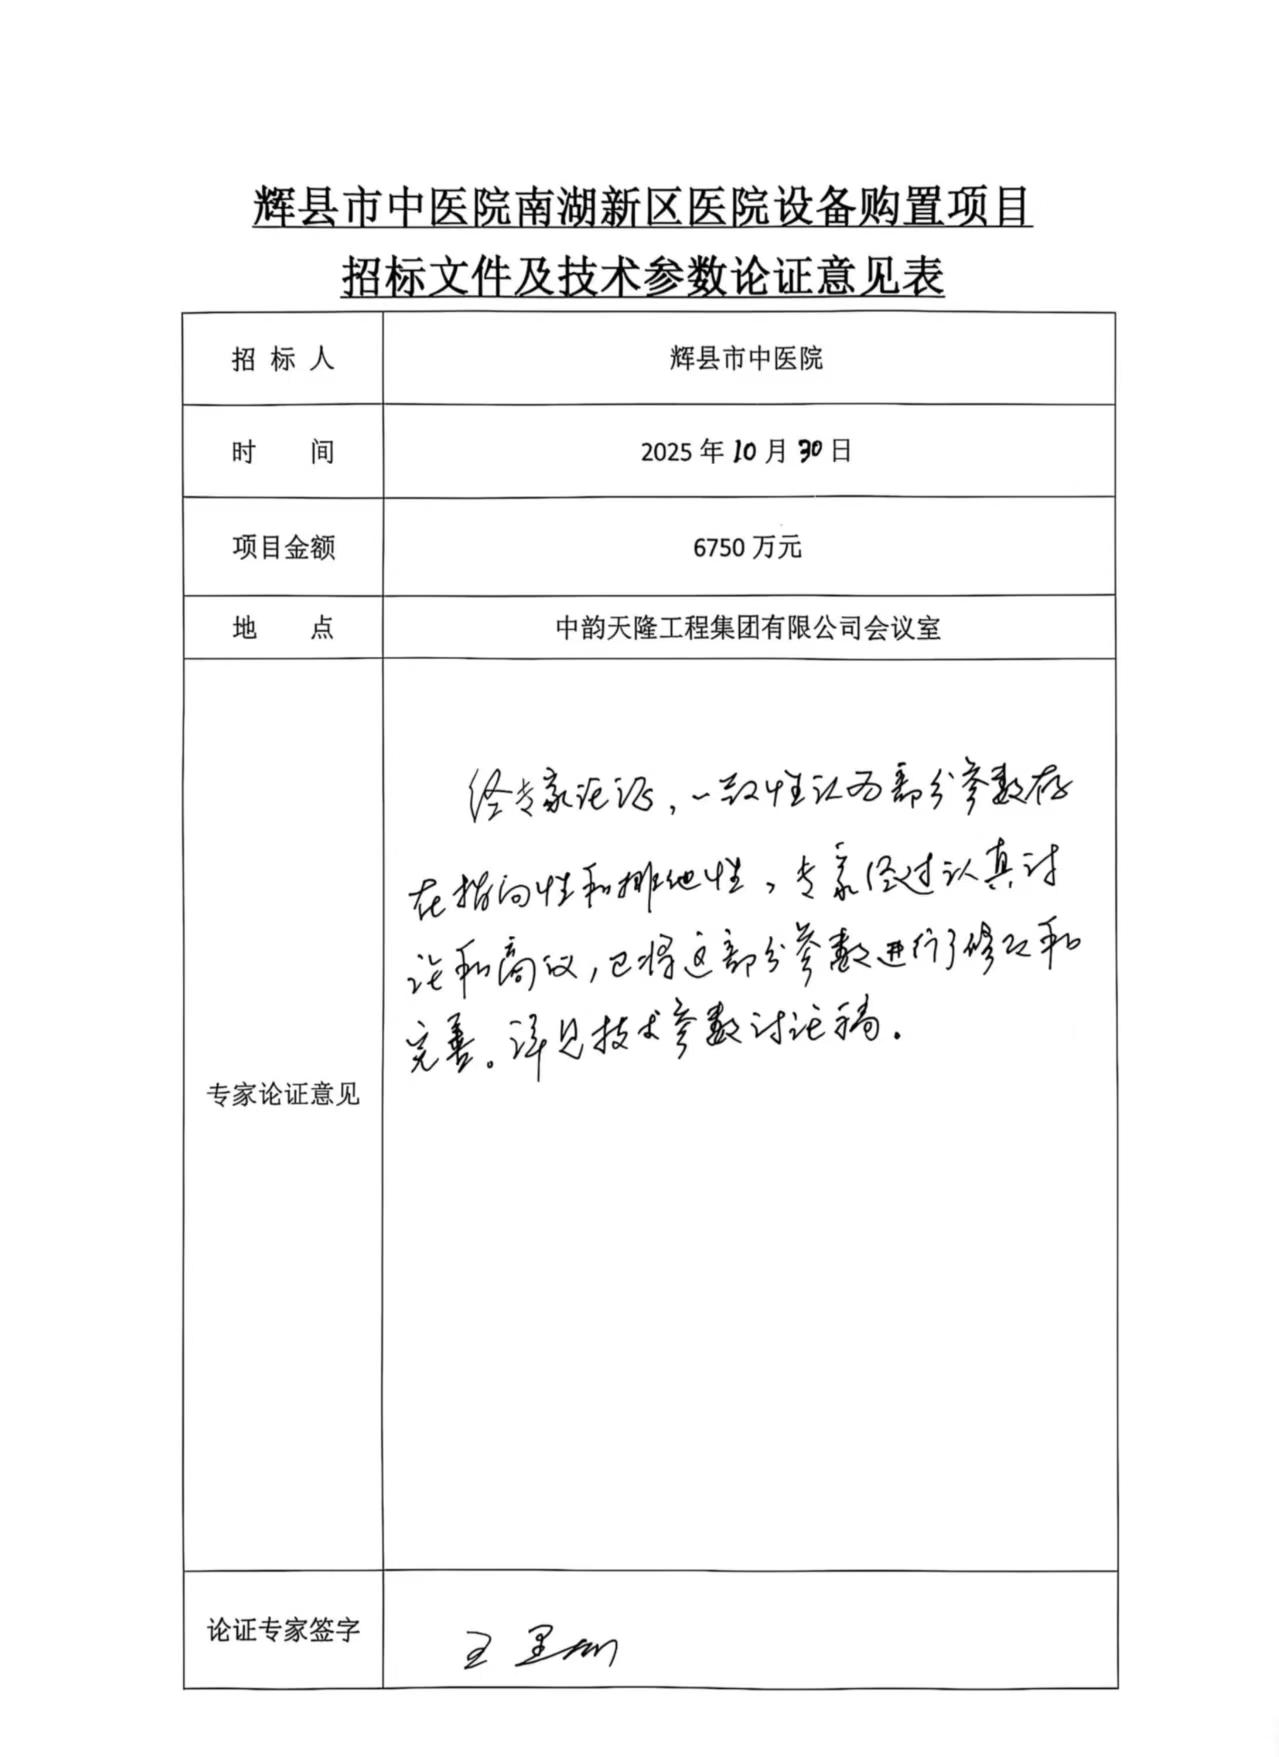 辉县市中医院南湖新区医院设备购置项目
招标文件及技术参数论证意见表
招标人 辉县市中医院
时间 2025年10月30日
项目金额 6750万元
地点 中韵天隆工程集团有限公司会议室
专家论证意见
经专家论证，一致性认为部分参数存
在指向性和排他性，专家经过认真讨
论和商议，已将这部分参数进行了修改和
完善。详见技术参数讨论稿.
论证专家签字 王